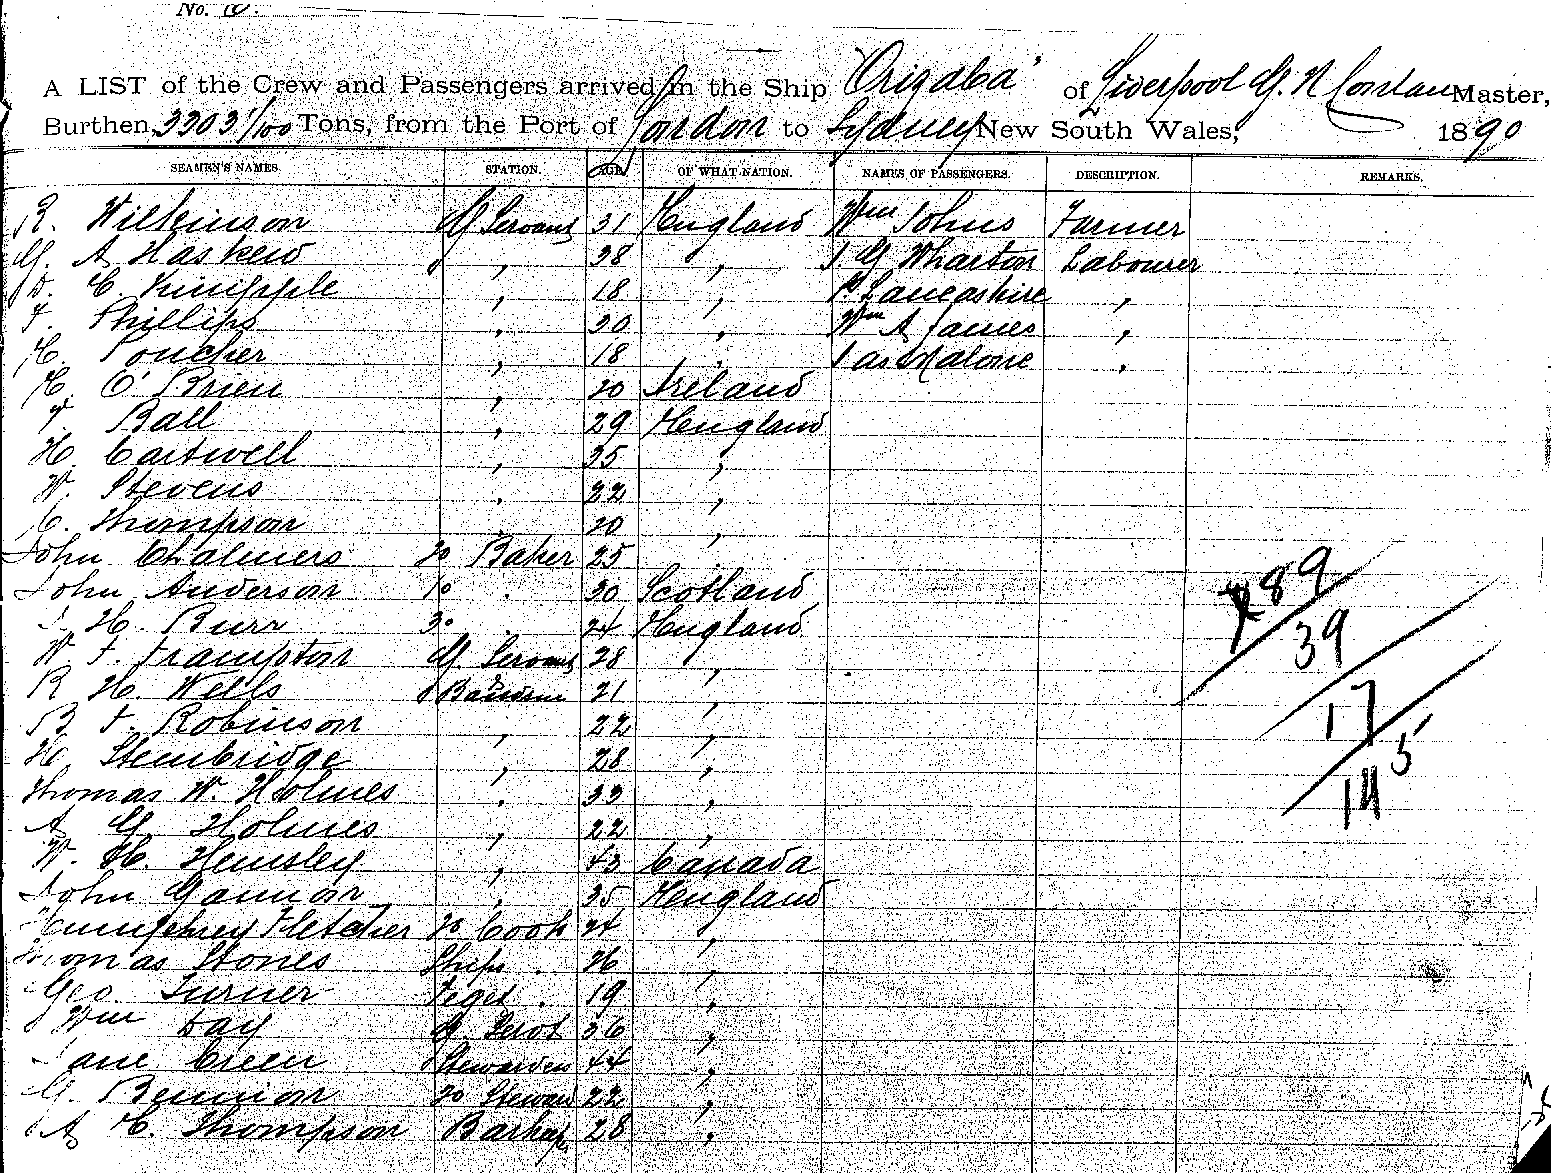 No. 6.
A LIST of the Crew and Passengers arrived in the Ship "Orizaba" of Liverpool G. N Conlan Master,
Burthen, 3303 1/100 Tons, from the Port of London to Sydney New South Wales, 1890
SEAMEN'S NAMES. STATION. AGE OF WHAT NATION. NAMES OF PASSENGERS. DESCRIPTION. REMARKS.
R. Wilkinson G Servant 31 England Wm Johns Farmer
G. A Haskew " 38 " J G Wharton Labourer
W. C. Knipple " 18 " Lancashire "
F. Phillips " 30 " Wm A James "
C. Poucher " 18 " Jas Malone "
C. O'Brien " 20 Ireland
T. Ball " 29 England
H. Cartwell " 35 "
W. Stevens " 22 "
C. Thompson 20 "
John Chalmers 20 Baker 25
John Anderson 10 " 30 Scotland
J. H. Burr 30 24 England
W F. Frampton G Servant 28 "
R H. Wells Bandsman 21 "
B F. Robinson " 22 "
H. Stembridge " 28 "
Thomas W. Holmes " 33 "
A G Holmes " 22 "
W. H. Hemsley " 43 Canada
John Gannon " 35 England
Humphrey Fletcher Cook 24 "
Thomas Stones Ships " 26 "
Geo. Turner " 19 "
Wm Day G Servt 36 "
Jane Green Stewardess 44 "
G. Bennion 20 Steward 22 "
A C. Thompson Barkeep 28 "
289
39
17
5
14